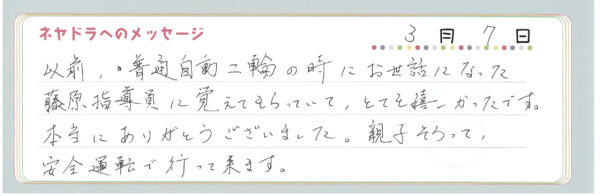 ネヤドラへのメッセージ 3月7日
以前、普通自動二輪の時にお世話になった
藤原指導員に覚えてもらっていて、とても嬉しかったです。
本当にありがとうございました。親子そろって、
安全運転で行って来ます。